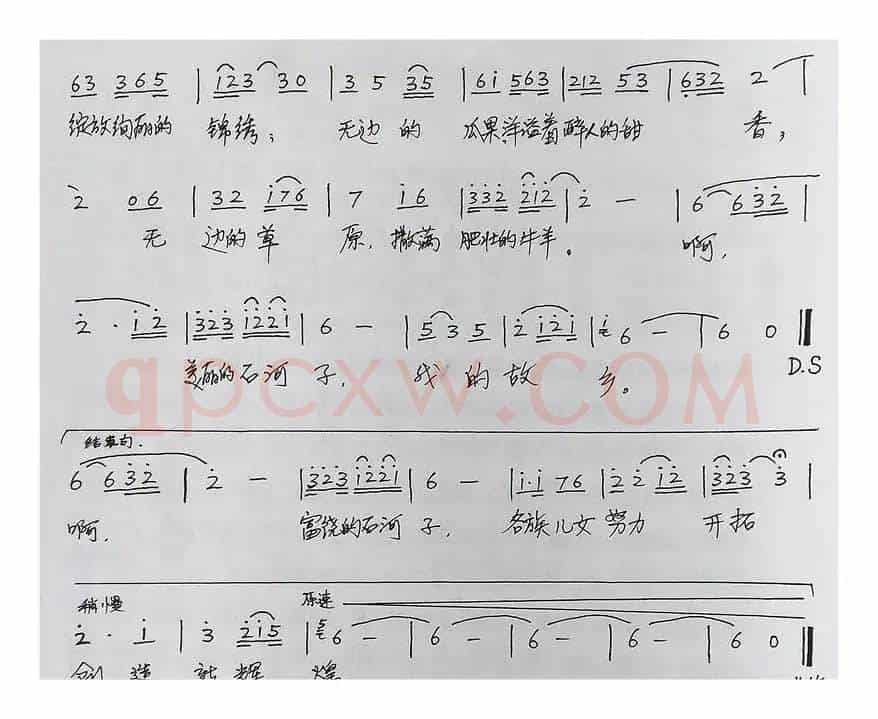 63 365 | 123 30 | 3 5 35 | 6i 563 | 212 53 | 632 2 |
绽放绚丽的 锦绣; 无边 的 瓜果洋溢着醉人的甜 香,
2 06 | 32 i76 | 7 i6 | 332 212 | 2 — | 6 632 |
无 边的草 原, 撒满 肥壮的牛羊。 啊,
2 · i2 | 323 i22i | 6 — | 5 3 5 | 2 i2i | 6 — | 6 0
D.S
美丽的石河 子, 我 的 故 乡。
qpcxw.com
结束句.
6 632 | 2 — | 323 i22i | 6 — | i·i 76 | 2 2 i2 | 323 3 |
啊, 富饶的石河 子, 各族儿女 努力 开拓
稍慢 原速
2 · i | 3 2i5 | 6 — | 6 — | 6 — | 6 — | 6 0
创 造 新 辉 煌